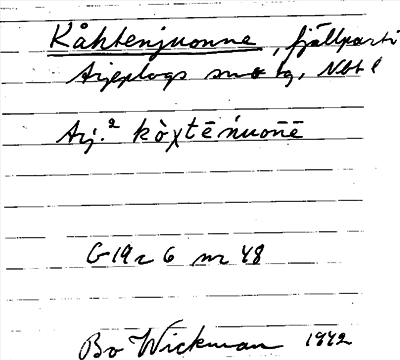 Kåhtenjuonne, fjällparti
Arjeplogs sn o tg, Nbt l
Arj.² kòχtēńuōnē
G 19 c 6 nr 48
Bo Wickman 1942